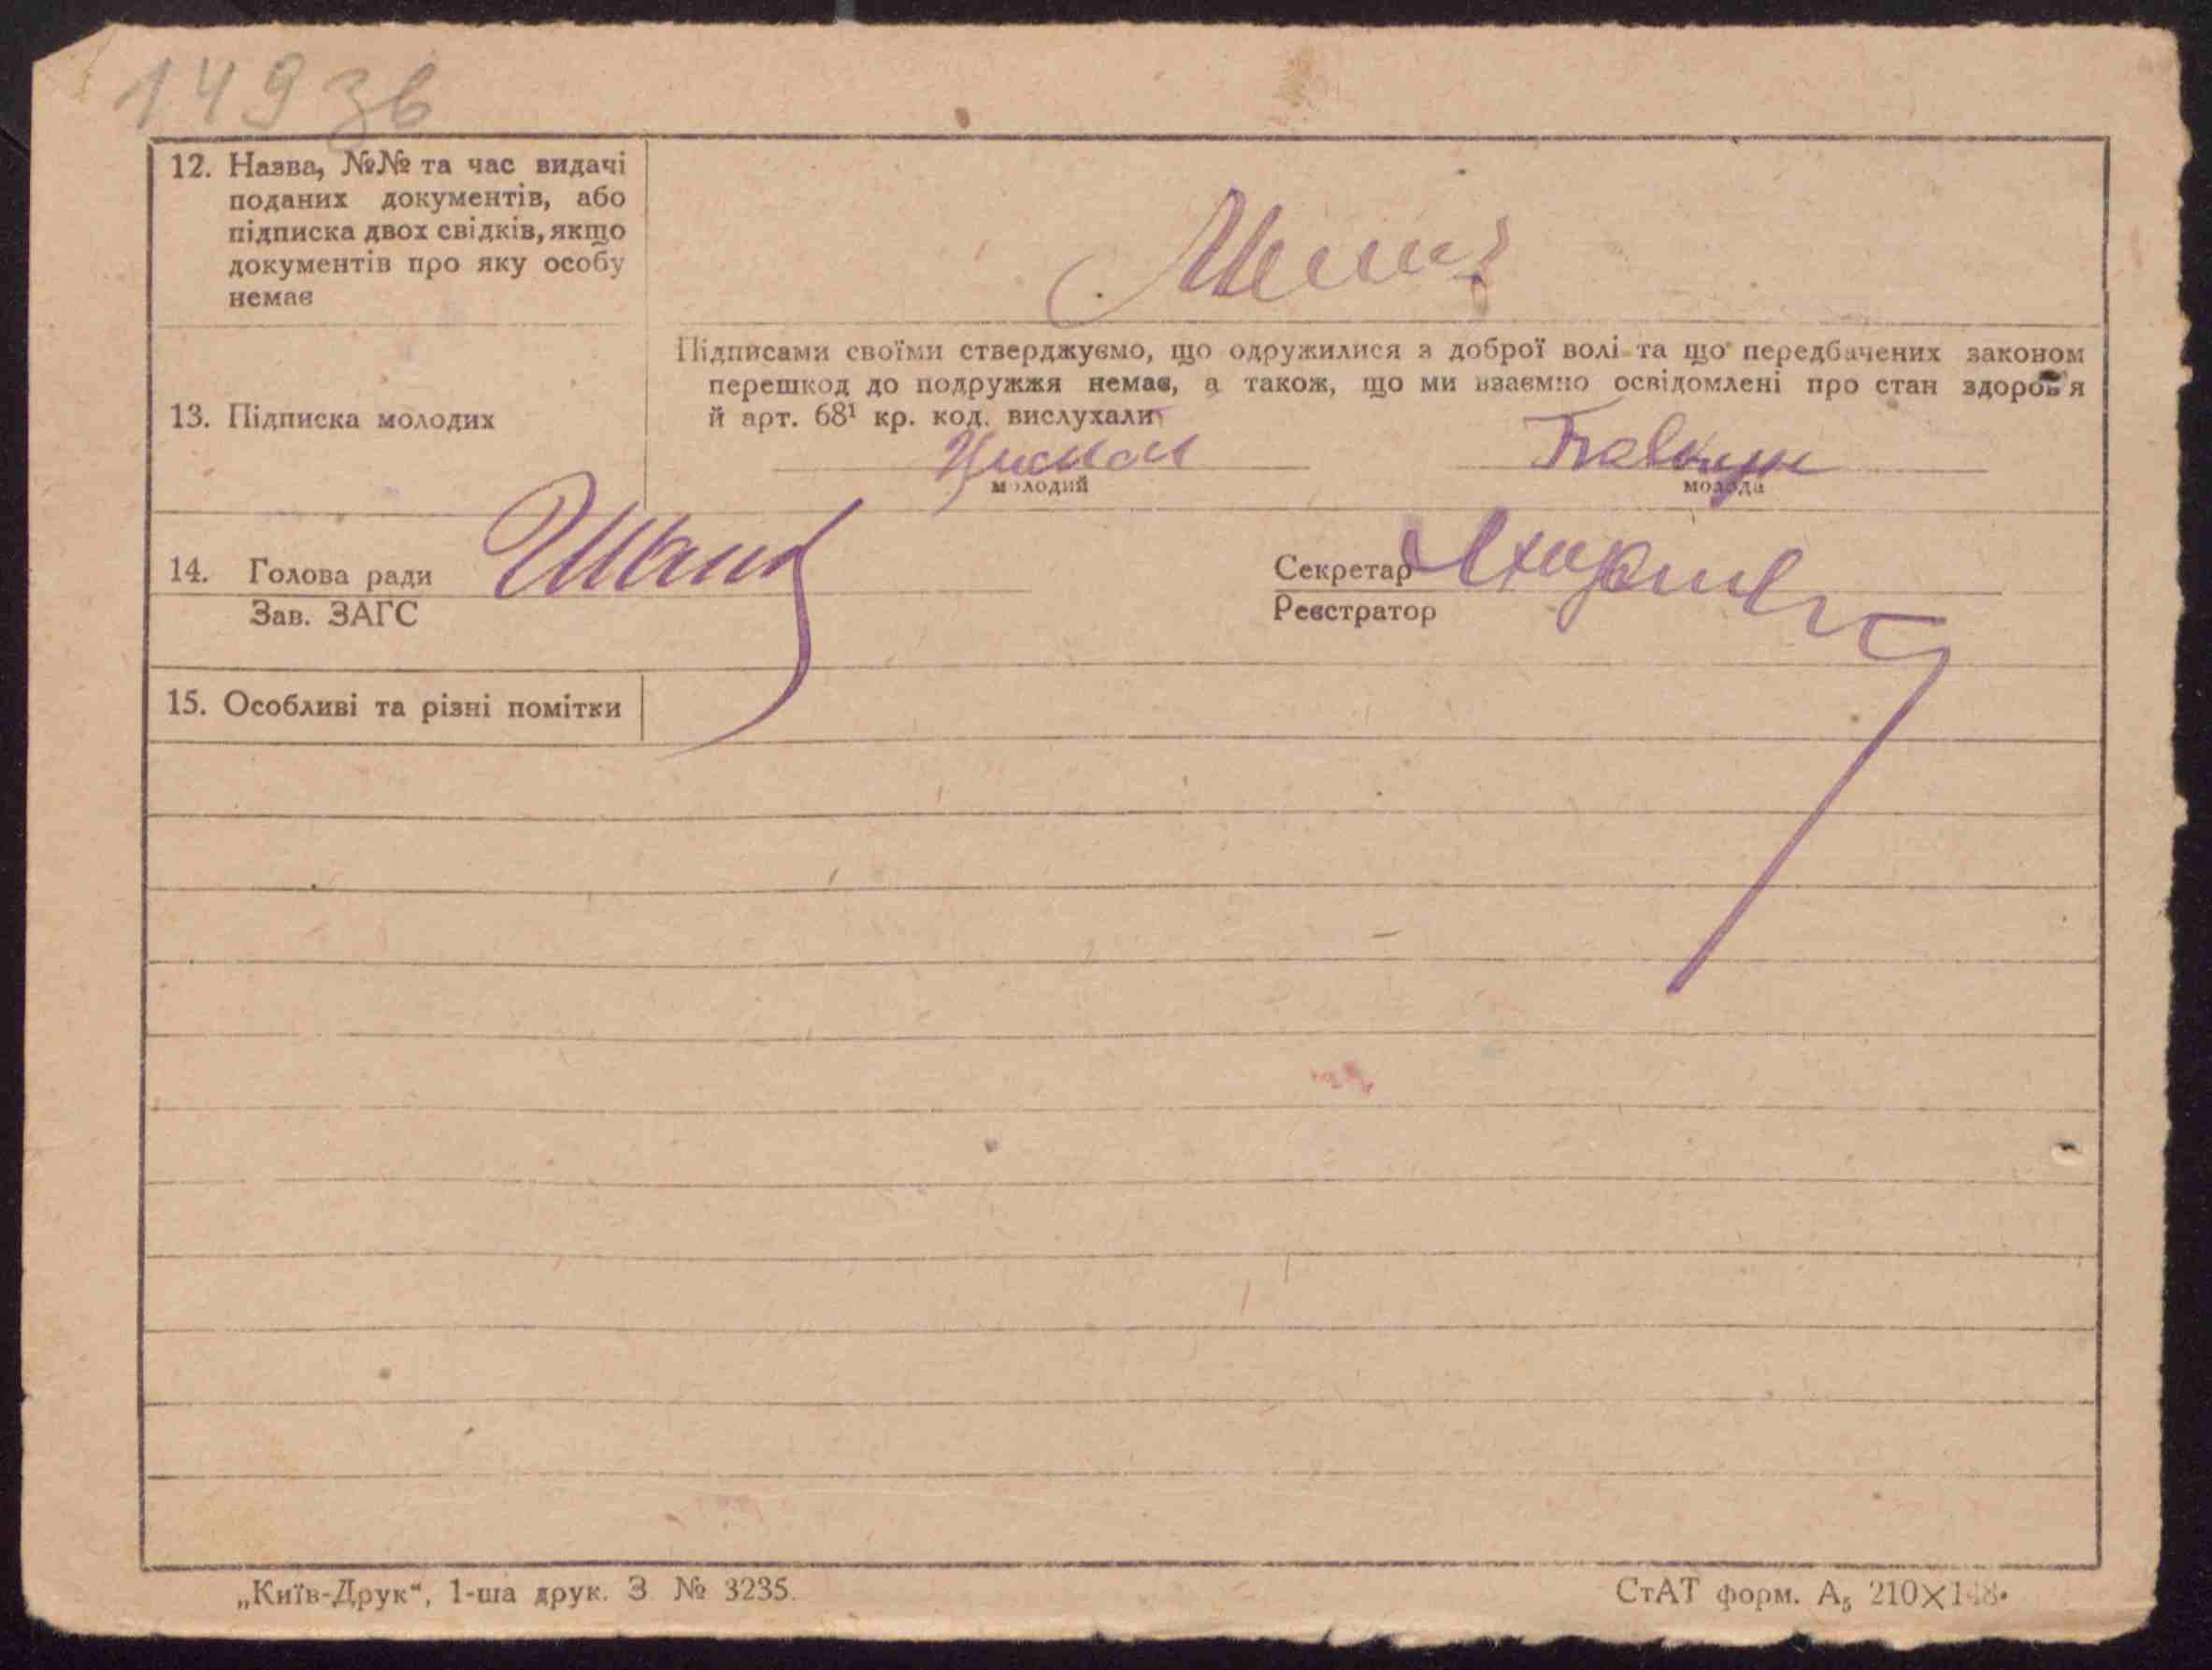 149 зв
12. Назва, №№ та час видачі
поданих документів, або
підписка двох свідків, якщо
документів про яку особу
немає
Підписами своїми стверджуємо, що одружилися з доброї волі та що передбачених законом
перешкод до подружжя немає, а також, що ми взаємно освідомлені про стан здоров'я
й арт. 68¹ кр. код. вислухали
13. Підписка молодих
молодий
молода
14. Голова ради
Зав. ЗАГС
Секретар
Реєстратор
15. Особливі та різні помітки
„Київ-Друк“, 1-ша друк. З № 3235.
СтАТ форм. А₅ 210×148.